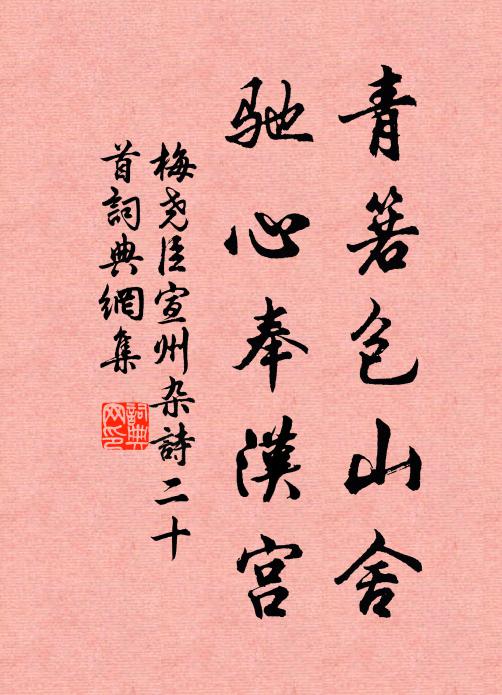 青箬包山舍
驰心奉漢宫
梅尧臣宣州杂詩二十
首詞典網集
詞典
网印